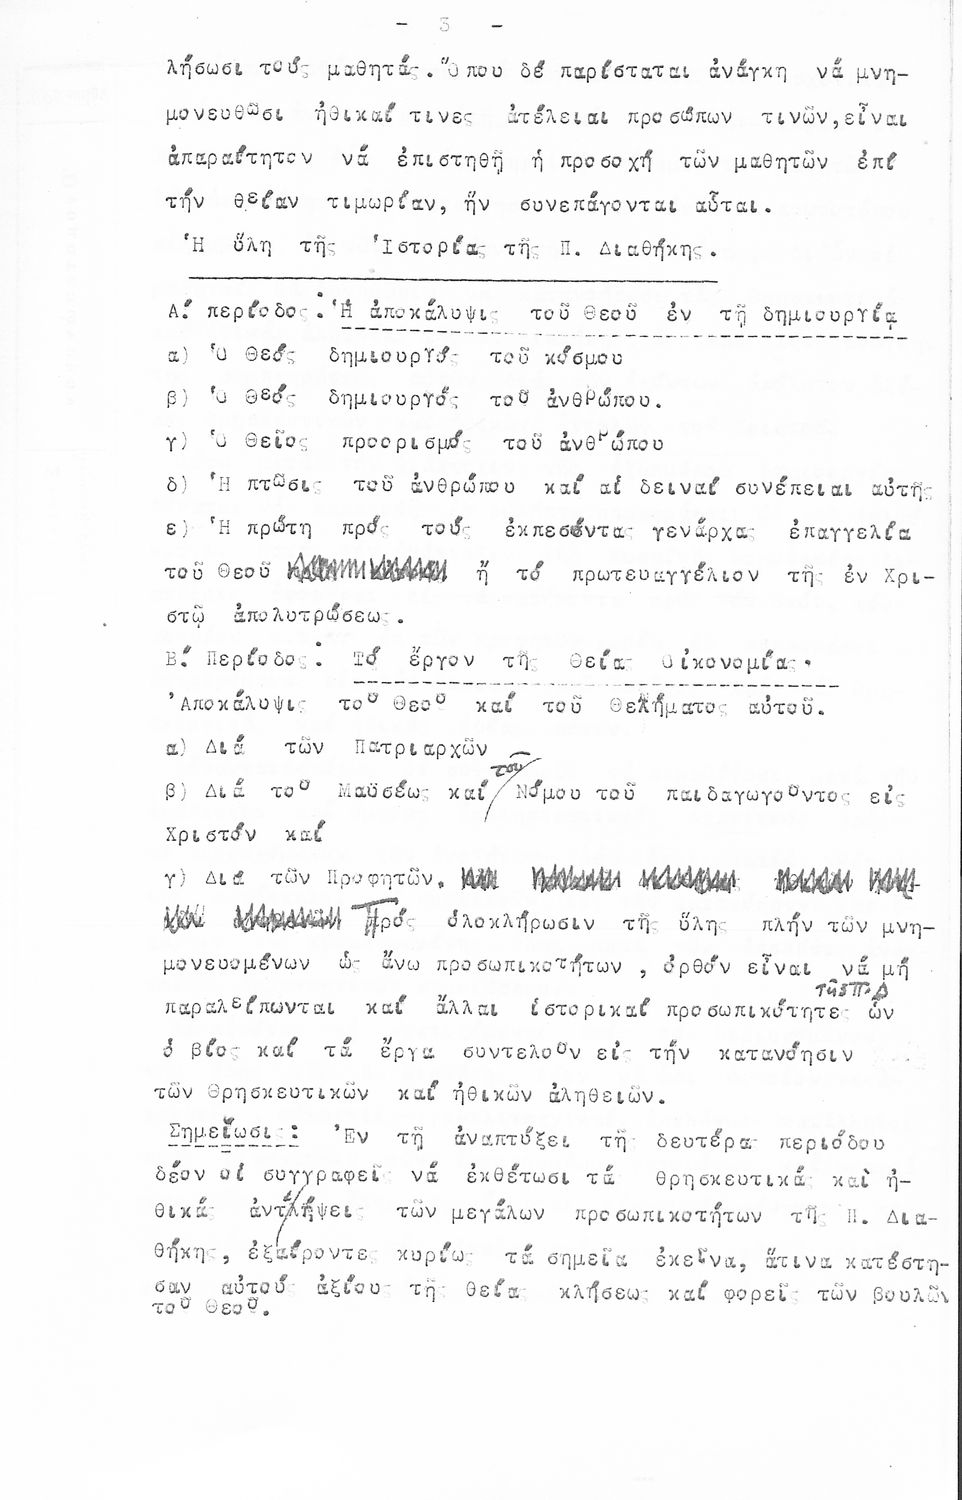 - 3 -
λήσωσι τούς μαθητάς. Ὅπου δέ παρίσταται ἀνάγκη νά μνη-
μονευθῶσι ἠθικαί τινες ἀτέλειαι προσώπων τινῶν, εἶναι
ἀπαραίτητον νά ἐπιστηθῇ ἡ προσοχή τῶν μαθητῶν ἐπί
τήν θείαν τιμωρίαν, ἥν συνεπάγονται αὗται.
Ἡ ὕλη τῆς Ἱστορίας τῆς Π. Διαθήκης.
Α! περίοδος: Ἡ ἀποκάλυψις τοῦ Θεοῦ ἐν τῇ δημιουργίᾳ
α) Ὁ Θεός δημιουργός τοῦ κόσμου
β) Ὁ Θεός δημιουργός τοῦ ἀνθρώπου.
γ) Ὁ Θεῖος προορισμός τοῦ ἀνθρώπου
δ) Ἡ πτῶσις τοῦ ἀνθρώπου καί αἱ δειναί συνέπειαι αὐτῆς
ε) Ἡ πρώτη πρός τούς ἐκπεσόντας γενάρχας ἐπαγγελία
τοῦ Θεοῦ ἤ τό πρωτευαγγέλιον τῆς ἐν Χρι-
στῷ ἀπολυτρώσεως.
Β! Περίοδος: Τό ἔργον τῆς Θείας Οἰκονομίας.
Ἀποκάλυψις τοῦ Θεοῦ καί τοῦ Θελήματος αὐτοῦ.
α) Διά τῶν Πατριαρχῶν
β) Διά τοῦ Μαϋσέως καί τοῦ Νόμου τοῦ παιδαγωγοῦντος εἰς
Χριστόν καί
γ) Διά τῶν Προφητῶν.
Πρός ὁλοκλήρωσιν τῆς ὕλης πλήν τῶν μνη-
μονευομένων ὡς ἄνω προσωπικοτήτων , ὀρθόν εἶναι νά μή
παραλείπωνται καί ἄλλαι ἱστορικαί προσωπικότητες τῆς Π Δ ὧν
ὁ βίος καί τά ἔργα συντελοῦν εἰς τήν κατανόησιν
τῶν Θρησκευτικῶν καί ἠθικῶν ἀληθειῶν.
Σημείωσις: Ἐν τῇ ἀναπτύξει τῆς δευτέρας περιόδου
δέον οἱ συγγραφεῖς νά ἐκθέτωσι τά θρησκευτικάς καὶ ἠ-
θικάς ἀντιλήψεις τῶν μεγάλων προσωπικοτήτων τῆς Π. Δια-
θήκης, ἐξαίροντες κυρίως τά σημεῖα ἐκεῖνα, ἅτινα κατέστη-
σαν αὐτούς ἀξίους τῆς θείας κλήσεως καί φορεῖς τῶν βουλῶν
τοῦ Θεοῦ.